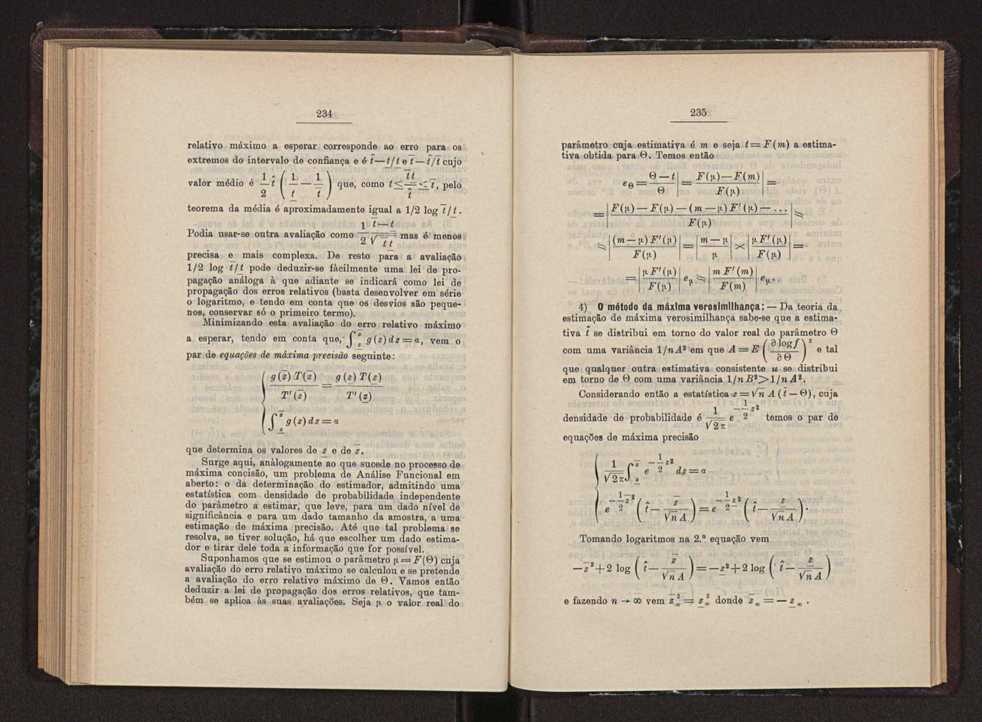 234
relativo máximo a esperar corresponde ao erro para os
extremos do intervalo de confiança e é t̂—t̲/t̲ e t̂—t̄/t̄ cujo
valor médio é 1/2 t̂ (1/t̲ — 1/t̄) que, como t̲ ≤ t̲t̄/t̂ ≤ t̄, pelo
teorema da média é aproximadamente igual a 1/2 log t̄/t̲.
Podia usar-se outra avaliação como 1/2 (t̄—t̲)/√(t̲ t̄) mas é menos
precisa e mais complexa. De resto para a avaliação
1/2 log t̄/t̲ pode deduzir-se fàcilmente uma lei de pro-
pagação análoga à que adiante se indicará como lei de
propagação dos erros relativos (basta desenvolver em série
o logaritmo, e tendo em conta que os desvios são peque-
nos, conservar só o primeiro termo).
Minimizando esta avaliação do erro relativo máximo
a esperar, tendo em conta que, ∫ g(z) dz = a, vem o
par de equações de máxima precisão seguinte:
g(z̄) T(z̄) / T'(z̄) = g(z̲) T(z̲) / T'(z̲)
∫ g(z) dz = a
que determina os valores de z̲ e de z̄.
Surge aqui, anàlogamente ao que sucede no processo de
máxima concisão, um problema de Análise Funcional em
aberto: o da determinação do estimador, admitindo uma
estatística com densidade de probabilidade independente
do parâmetro a estimar, que leve, para um dado nível de
significância e para um dado tamanho da amostra, a uma
estimação de máxima precisão. Até que tal problema se
resolva, se tiver solução, há que escolher um dado estima-
dor e tirar dele toda a informação que for possível.
Suponhamos que se estimou o parâmetro μ = F(Θ) cuja
avaliação do erro relativo máximo se calculou e se pretende
a avaliação do erro relativo máximo de Θ. Vamos então
deduzir a lei de propagação dos erros relativos, que tam-
bém se aplica às suas avaliações. Seja μ o valor real do
235
parâmetro cuja estimativa é m e seja t = F(m) a estima-
tiva obtida para Θ. Temos então
e_Θ = |(Θ — t)/Θ| = |(F(μ) — F(m))/F(μ)| =
= |(F(μ) — F(μ) — (m — μ) F'(μ) — ...)/F(μ)| ≈
≈ |(m — μ) F'(μ)/F(μ)| = |(m — μ)/μ| × |μ F'(μ)/F(μ)| =
= |μ F'(μ)/F(μ)| e_μ ≈ |m F'(m)/F(m)| e_μ.
4) O método da máxima verosimilhança: — Da teoria da
estimação de máxima verosimilhança sabe-se que a estima-
tiva t̂ se distribui em torno do valor real do parâmetro Θ
com uma variância 1/nA² em que A = E (∂ log f/∂Θ)² e tal
que qualquer outra estimativa consistente u se distribui
em torno de Θ com uma variância 1/n B² > 1/n A².
Considerando então a estatística z = √n A (t̂ — Θ), cuja
densidade de probabilidade é 1/√2π e^(—1/2 z²) temos o par de
equações de máxima precisão
1/√2π ∫ e^(—1/2 z²) dz = a
e^(—1/2 z̄²) (t̂ — z̄/(√n A)) = e^(—1/2 z̲²) (t̂ — z̲/(√n A)).
Tomando logaritmos na 2.ª equação vem
—z̄² + 2 log (t̂ — z̄/(√n A)) = —z̲² + 2 log (t̂ — z̲/(√n A))
e fazendo n → ∞ vem z̄²_∞ = z̲²_∞ donde z̄_∞ = — z̲_∞.